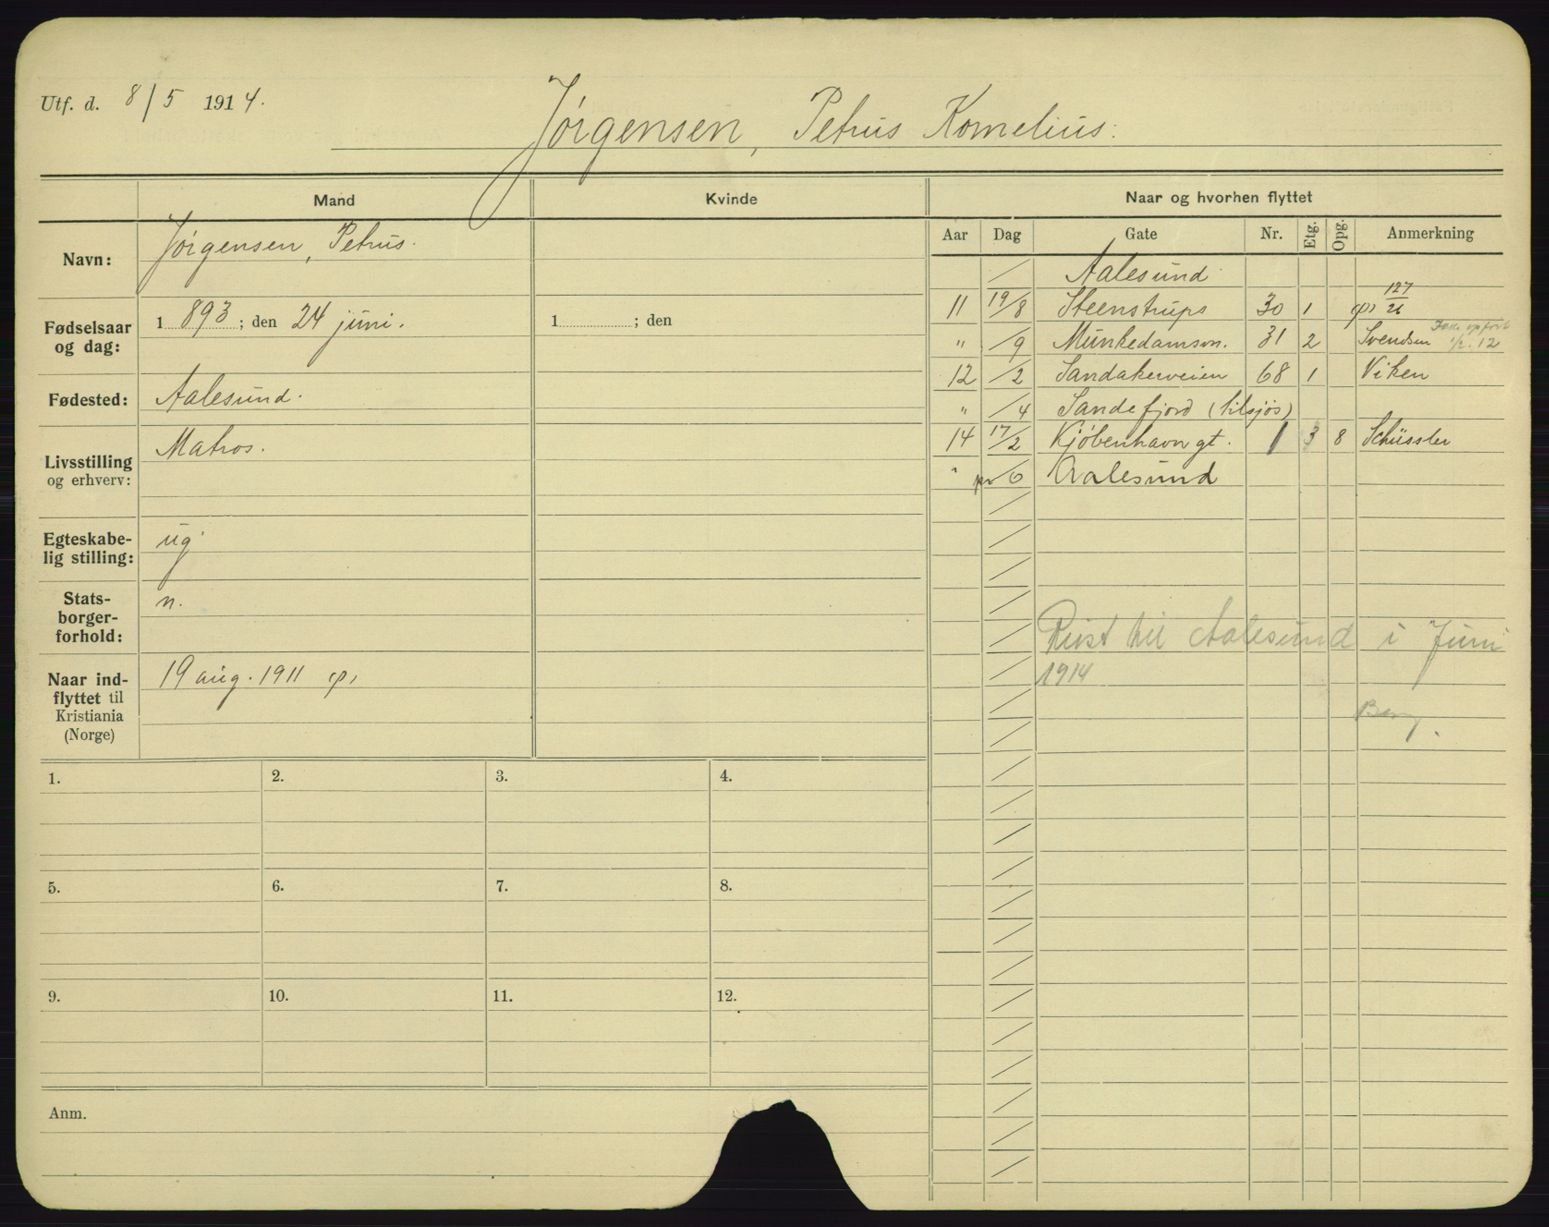 Utf. d. 8/5 1914.
Jørgensen, Petrus Kornelius.
Mand
Kvinde
Naar og hvorhen flyttet
Navn:
Jørgensen, Petrus.
Fødselsaar og dag:
1 893 ; den 24 juni.
1 ; den
Fødested:
Aalesund.
Livsstilling og erhverv:
Matros.
Egteskabelig stilling:
ug.
Statsborgerforhold:
n.
Naar indflyttet til Kristiania (Norge)
19 aug. 1911
Aar Dag Gate Nr. Etg. Opg. Anmerkning
/ Aalesund
11 19/8 Steenstrups 30 1 127/26
" /9 Munkedamsvn. 31 2 Svendsen 1/2. 12
12 /2 Sandakerveien 68 1 Viken
" /4 Sandefjord (tilsjøs)
14 17/2 Kjøbenhavn gt. 1 3 8 Schüssler
" /6 Aalesund
Reist til Aalesund i Juni
1914
1. 2. 3. 4.
5. 6. 7. 8.
9. 10. 11. 12.
Anm.